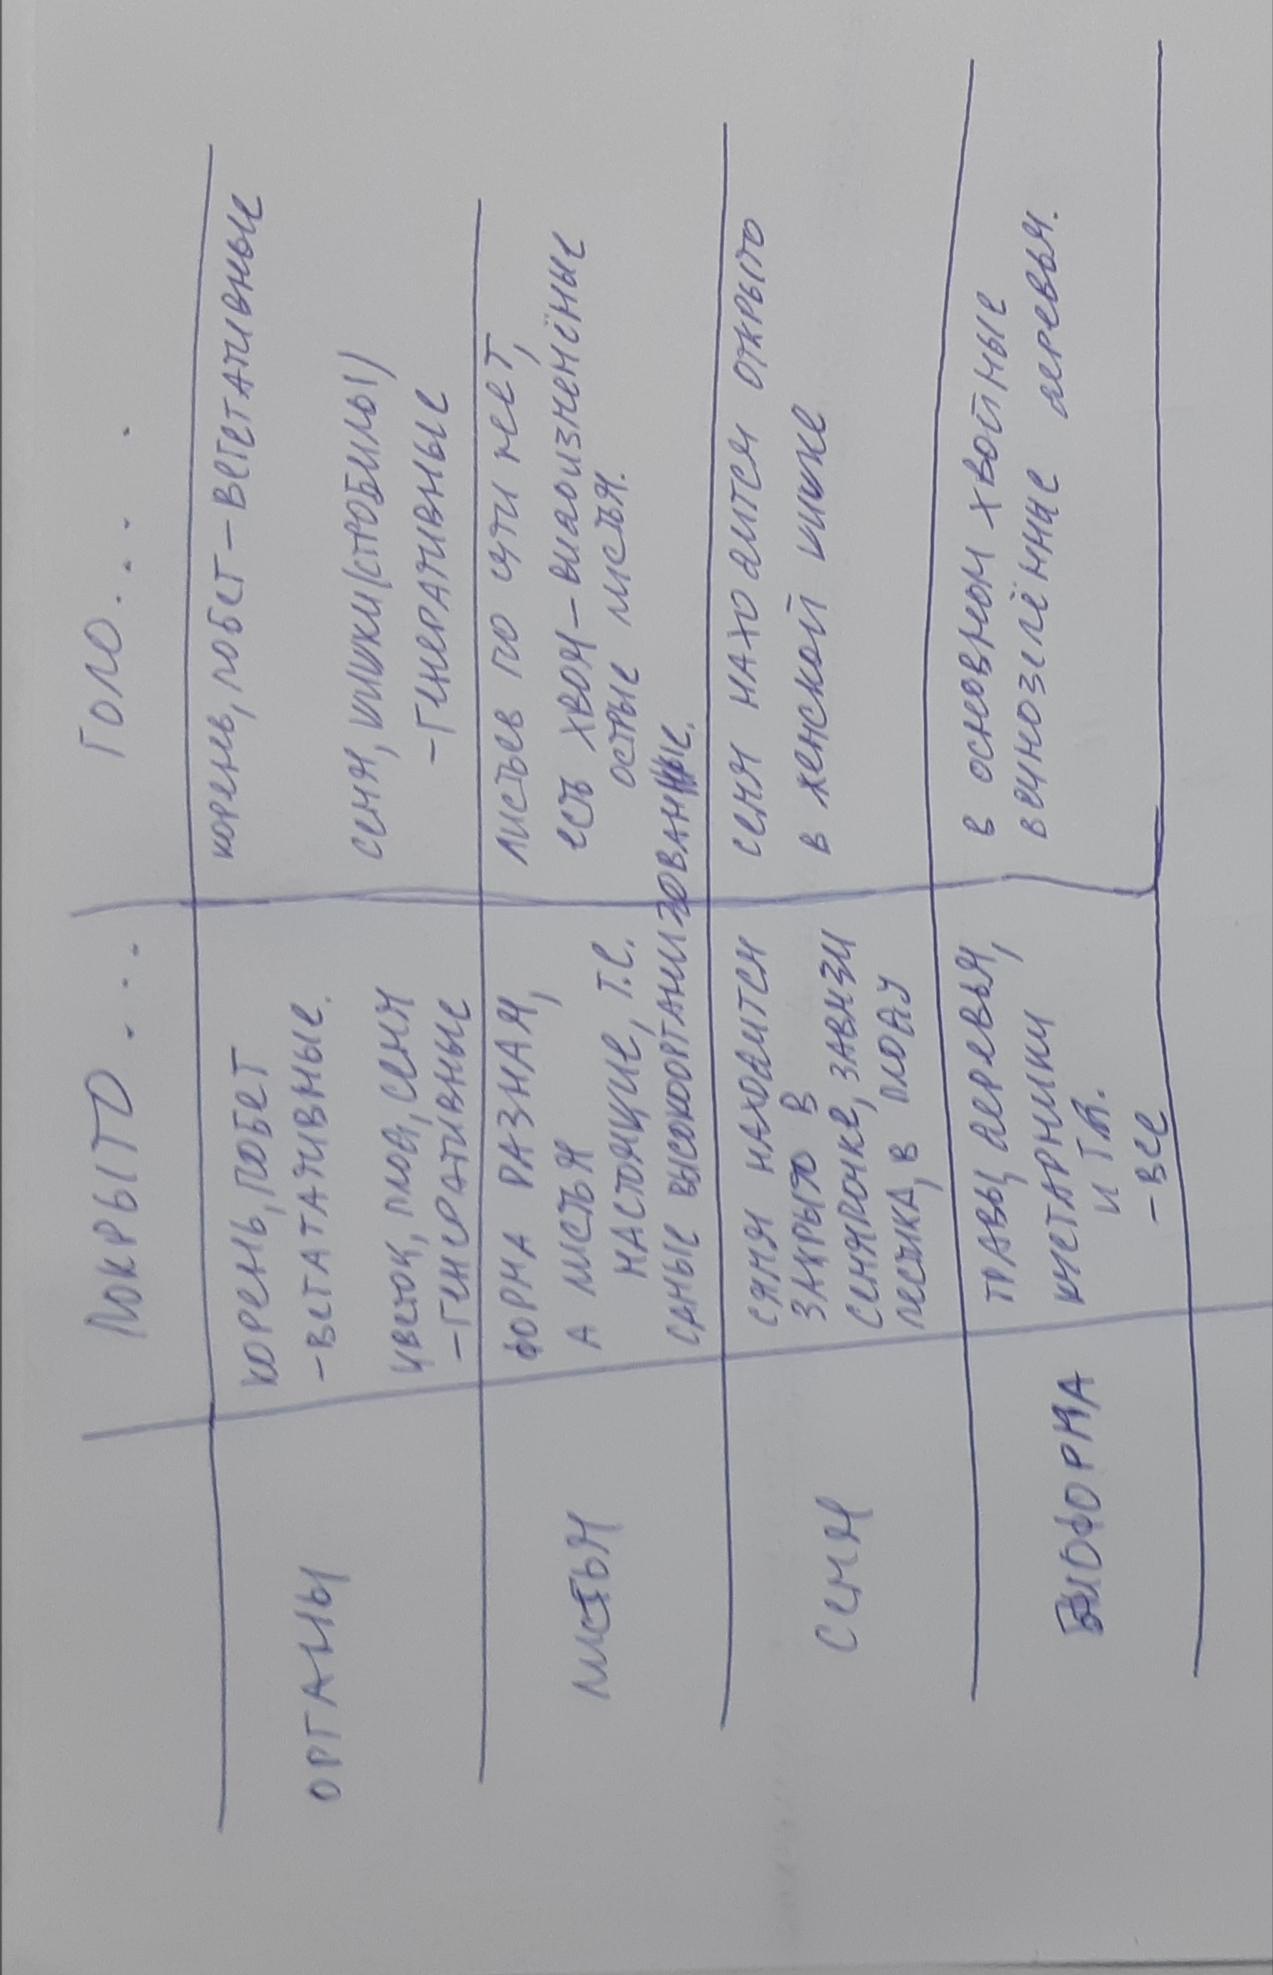 Покрыто.... Голо....
ОРГАНЫ
КОРЕНЬ, ПОБЕГ
-ВЕГАТАТИВНЫЕ.
ЦВЕТОК, ПЛОД, СЕМЯ
-ГЕНЕРАТИВНЫЕ
КОРЕНЬ, ПОБЕГ - ВЕГЕТАТИВНЫЕ
СЕМЯ, ШИШКИ (СТРОБИЛЫ)
-ГЕНЕРАТИВНЫЕ
ЛИСТЬЯ
ФОРМА РАЗНАЯ,
А ЛИСТЬЯ
НАСТОЯЩИЕ, Т.Е.
САМЫЕ ВЫСОКООРГАНИЗОВАННЫЕ.
ЛИСТЬЕВ ПО ЧТИ НЕТ,
ЕСТЬ ХВОЯ - ВИДОИЗМЕНЁНЫЕ
ОСТРЫЕ ЛИСТЬЯ.
СЕМЯ
СЕМЯ НАХОДИТСЯ
ЗАКРЫТО В
СЕМЯПОЧКЕ, ЗАВЯЗИ
ПЕСТИКА, В ПЛОДУ
СЕМЯ НАХОДИТСЯ ОТКРЫТО
В ЖЕНСКОЙ ШИШКЕ
БИОФОРМА
ТРАВЫ, ДЕРЕВЬЯ,
КУСТАРНИКИ
И Т.П.
-ВСЕ
В ОСНОВНОМ ХВОЙНЫЕ
ВЕЧНОЗЕЛЁННЫЕ ДЕРЕВЬЯ.